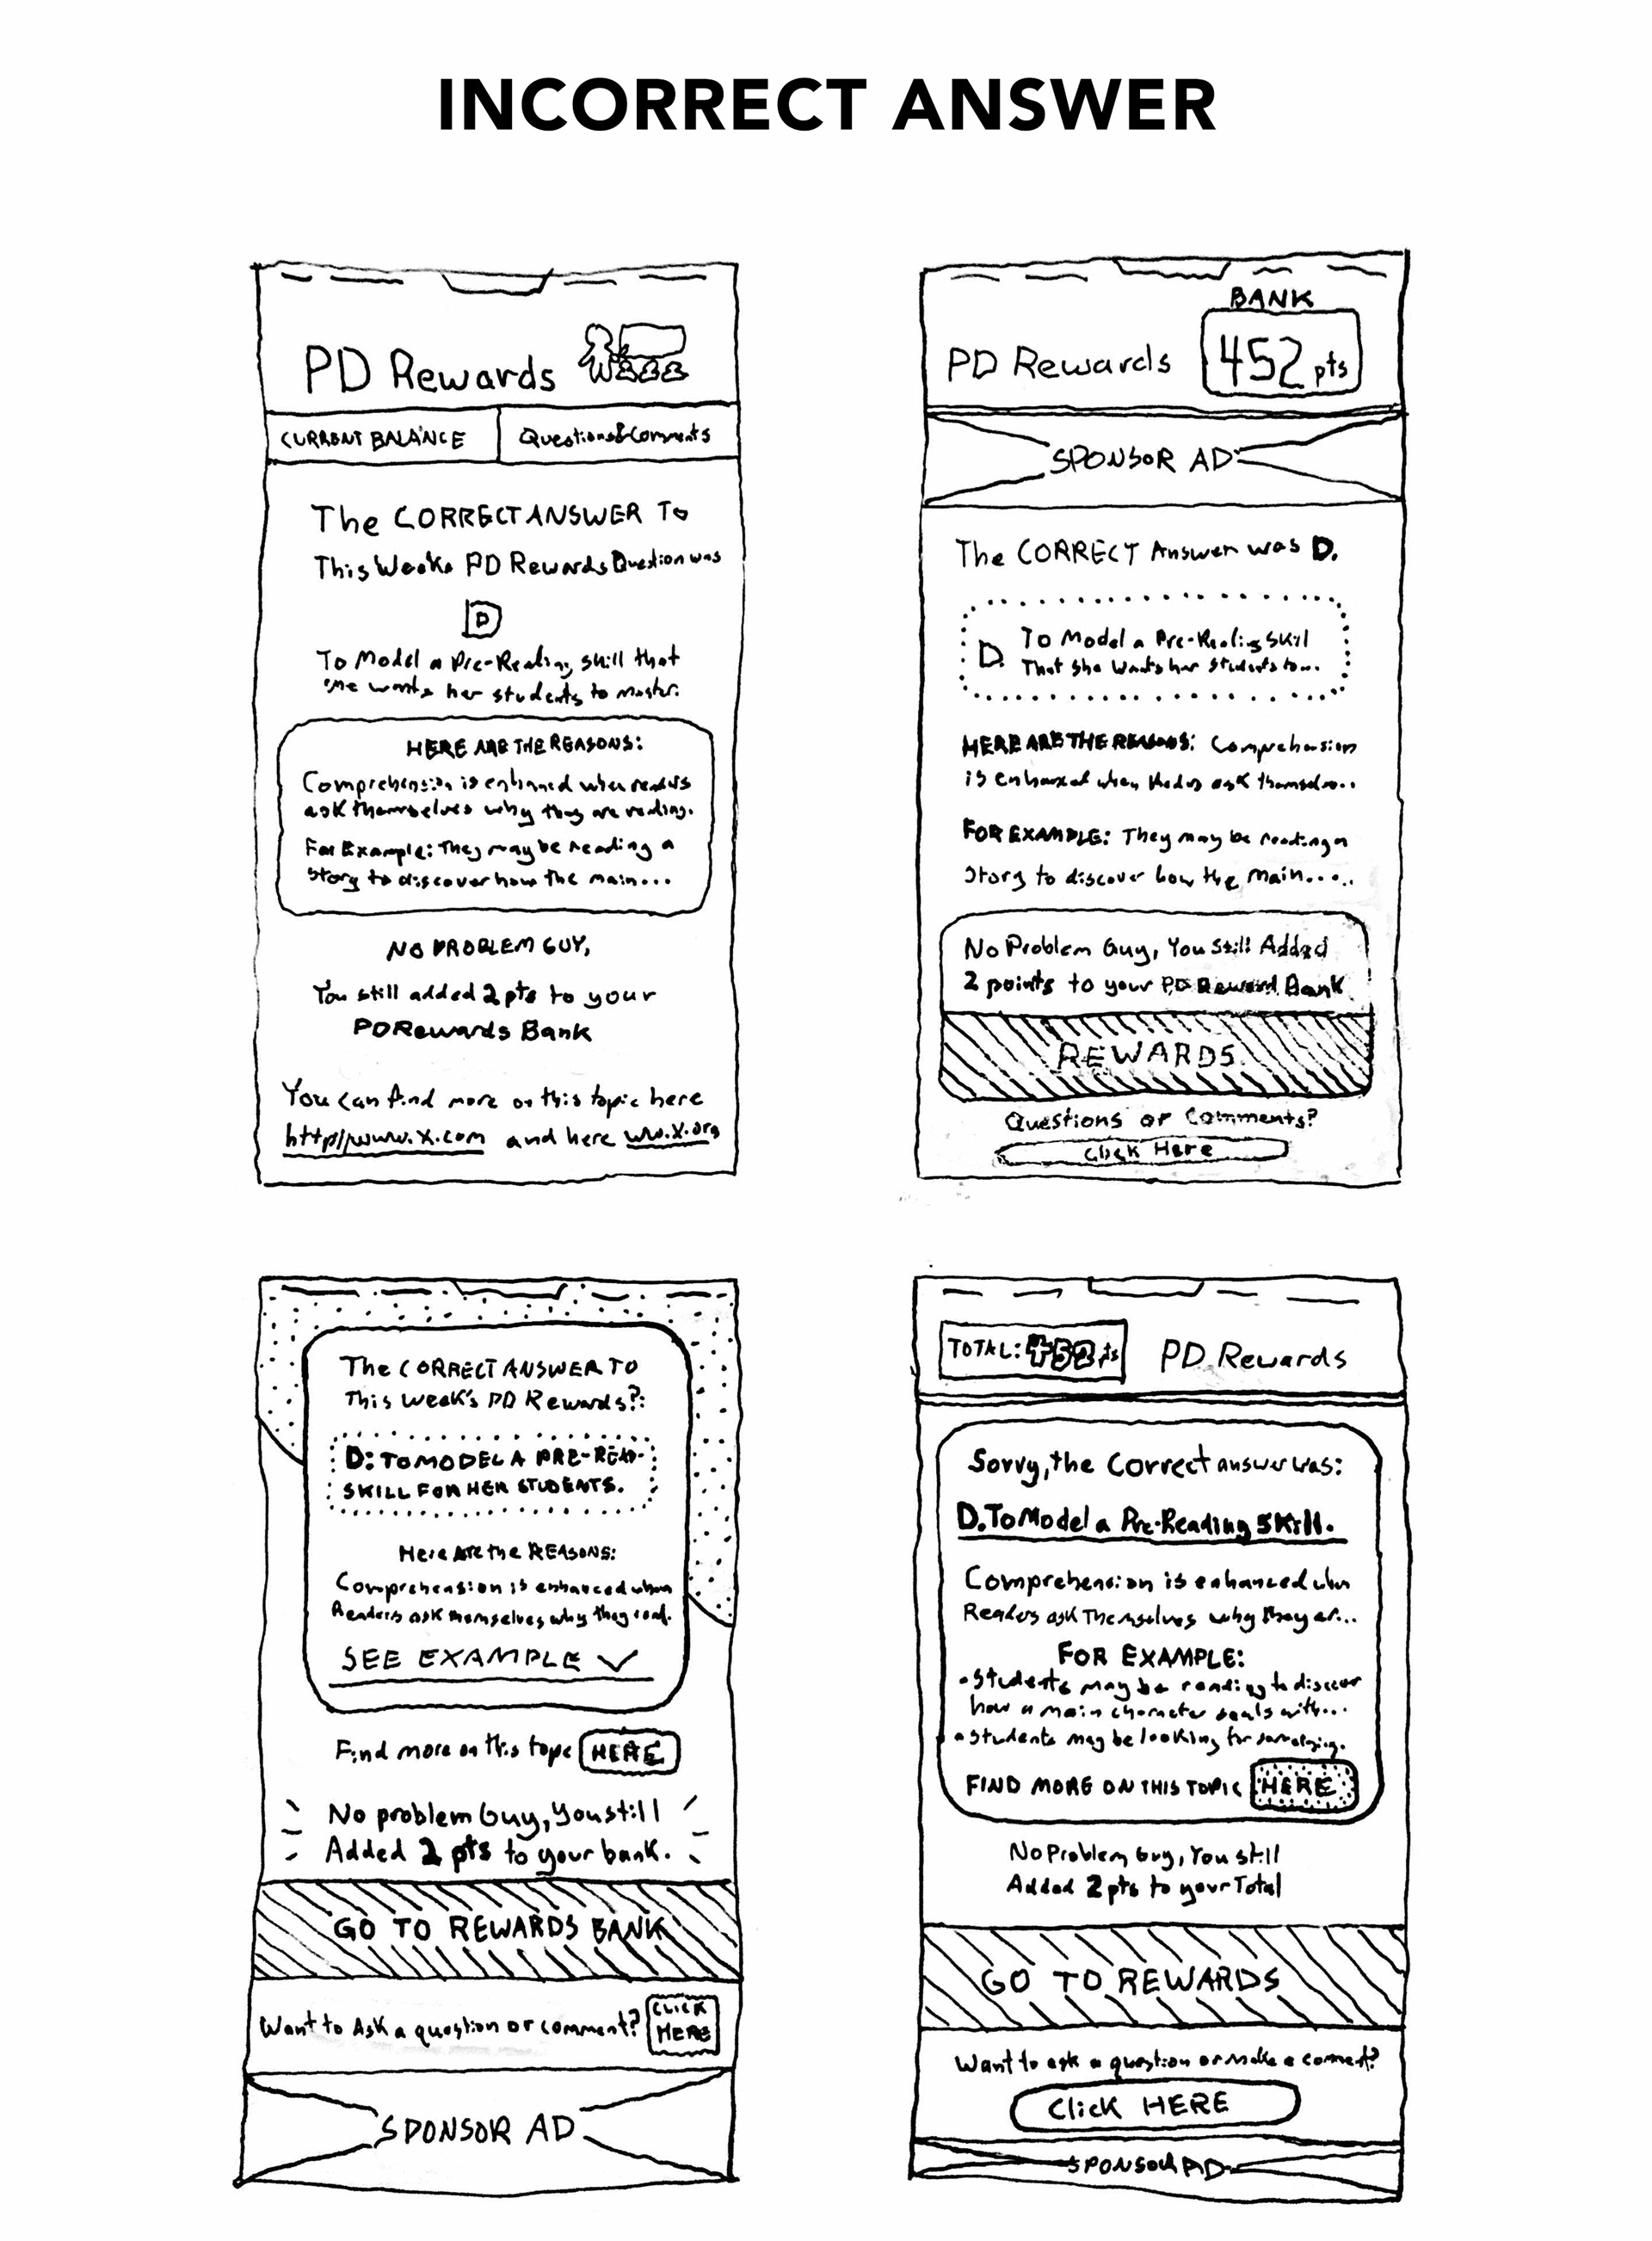 INCORRECT ANSWER
PD Rewards
CURRENT BALANCE
Questions & Comments
The CORRECT ANSWER To
This Weeks PD Rewards Question was
D
To Model a Pre-Reading skill that
she wants her students to master.
HERE ARE THE REASONS:
Comprehension is enhanced when readers
ask themselves why they are reading.
For Example: They may be reading a
story to discover how the main...
NO PROBLEM GUY,
You still added 2 pts to your
PD Rewards Bank
You can find more on this topic here
http//www.x.com and here ww.x.org
BANK
PD Rewards
452 pts
SPONSOR AD
The CORRECT Answer was D.
D. To Model a Pre-Reading Skill
That She Wants her students to...
HERE ARE THE REASONS: Comprehension
is enhanced when ask themselves...
FOR EXAMPLE: They may be reading a
story to discover how the main.....
No Problem Guy, You Still Added
2 points to your PD Reward Bank
REWARDS
Questions or Comments?
Click Here
The CORRECT ANSWER TO
This Week's PD Rewards?:
D: TO MODEL A PRE-READ-
SKILL FOR HER STUDENTS.
Here Are the REASONS:
Comprehension is enhanced when
Readers ask themselves why they read.
SEE EXAMPLE
Find more on this topic HERE
No problem Guy, You still
Added 2 pts to your bank.
GO TO REWARDS BANK
Want to Ask a question or comment?
CLICK
HERE
SPONSOR AD
TOTAL: 452 pts
PD Rewards
Sorry, the Correct answer was:
D. To Model a Pre-Reading Skill.
Comprehension is enhanced when
Readers ask Themselves why they ar...
FOR EXAMPLE:
• Students may be reading to discover
how a main character deals with...
• Students may be looking for
FIND MORE ON THIS TOPIC HERE
No Problem Guy, You still
Added 2 pts to your Total
GO TO REWARDS
Want to ask a question or Make a comment?
Click HERE
SPONSOR AD